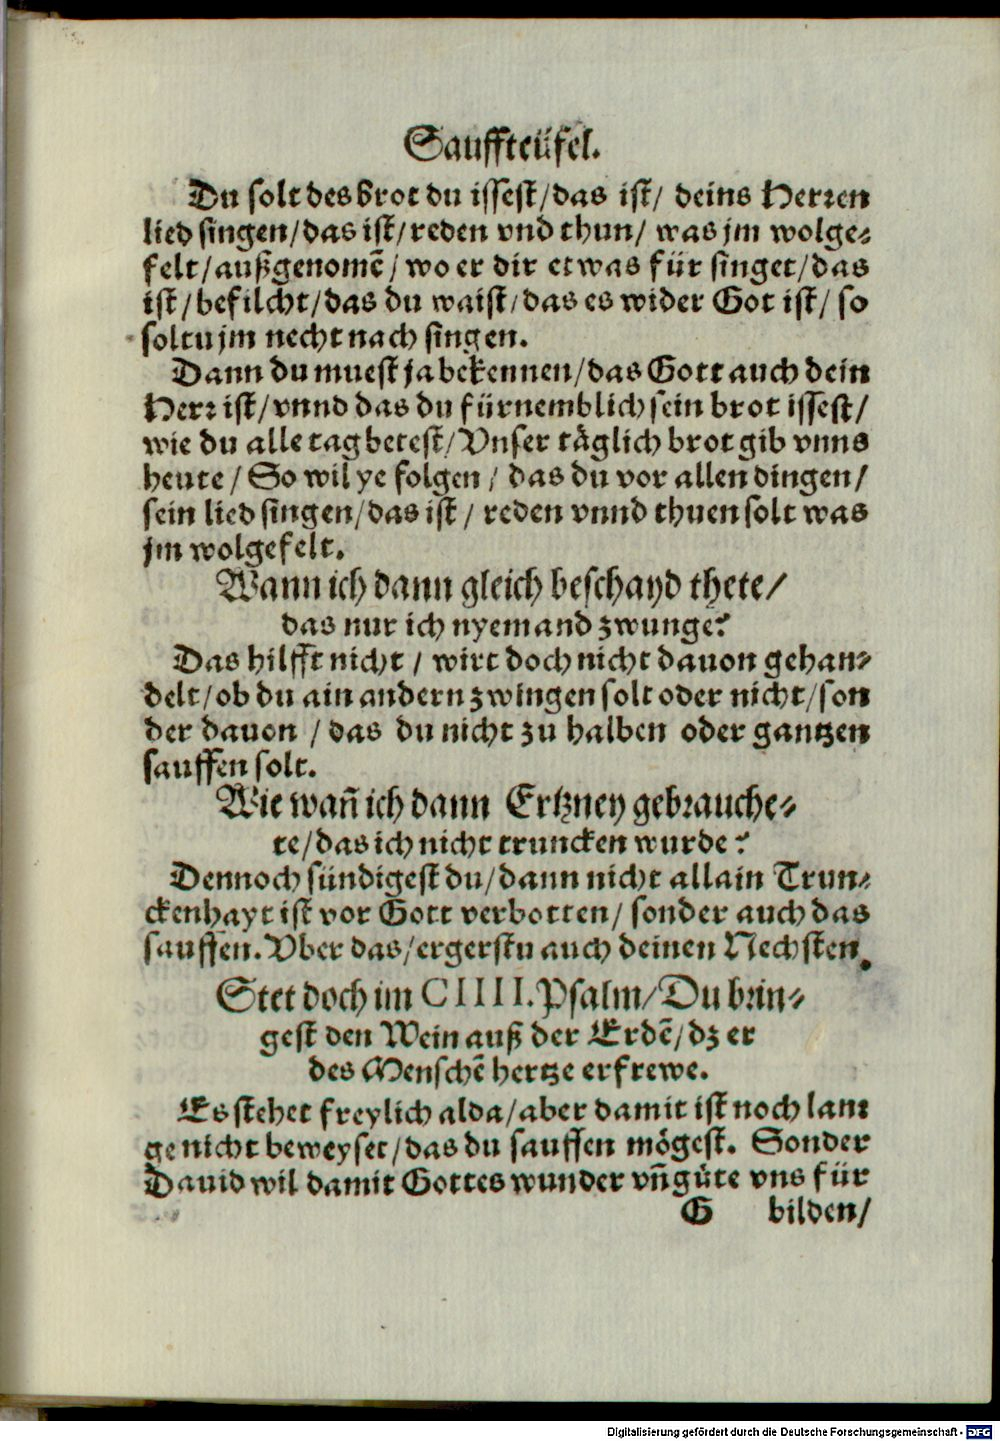 Sauffteüfel.
Du solt des brot du issest/das ist/ deins Herren
lied singen/das ist/reden vnd thun/ was jm wolge-
felt/außgenomē/ wo er dir etwas für singet/das
ist/befilcht/das du waist/das es wider Got ist/ so
soltu jm necht nach singen.
Dann du muest ja bekennen/das Gott auch dein
Herr ist/vnnd das du fürnemblich sein brot issest/
wie du alle tag betest/Vnser täglich brot gib vnns
heute/ So wil ye folgen/ das du vor allen dingen/
sein lied singen/das ist/ reden vnnd thuen solt was
jm wolgefelt.
Wann ich dann gleich beschayd thete/
das nur ich nyemand zwunge?
Das hilfft nicht/ wirt doch nicht dauon gehan-
delt/ob du ain andern zwingen solt oder nicht/son
der dauon /das du nicht zu halben oder gantzen
sauffen solt.
Wie wañ ich dann Ertzney gebrauche-
te/das ich nicht truncken wurde?
Dennoch sündigest du/dann nicht allain Trun-
ckenhayt ist vor Gott verbotten/ sonder auch das
sauffen. Vber das/ergerstu auch deinen Nechsten.
Stet doch im CIIII. Psalm/Du brin-
gest den Wein auß der Erdē/dz er
des Menschē hertze erfrewe.
Es stehet freylich alda/aber damit ist noch lann
ge nicht beweyset/das du sauffen mögest. Sonder
Dauid wil damit Gottes wunder vñ güte vns für
G bilden/
Digitalisierung gefördert durch die Deutsche Forschungsgemeinschaft - DFG